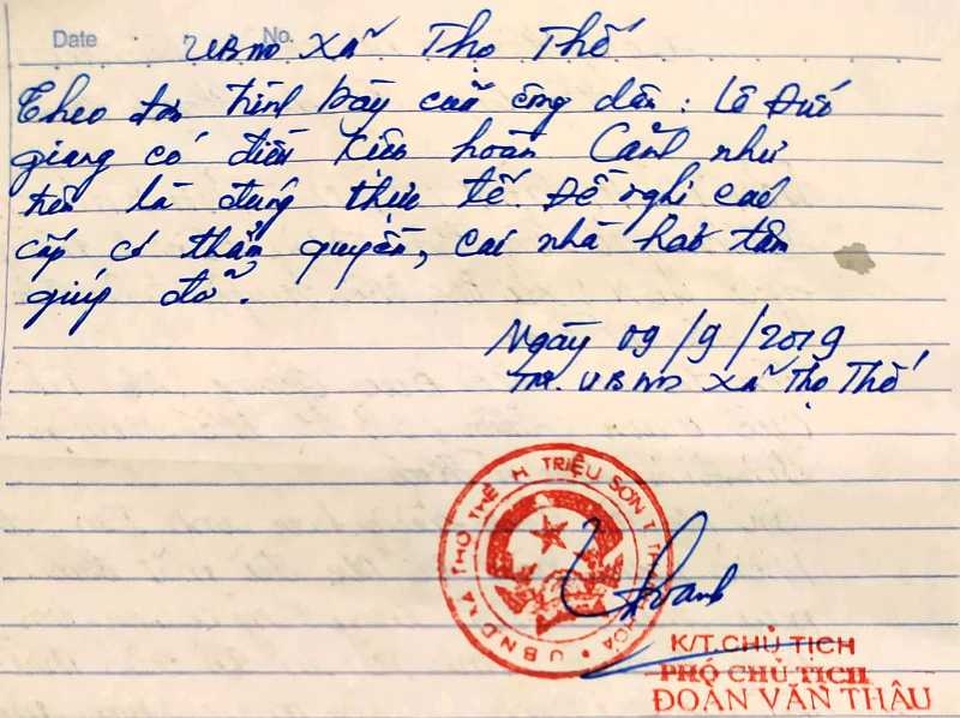 Date No.
UBND Xã Thọ Thế
Theo đơn trình bày của công dân: Lê Đức
giang có điều kiện hoàn cảnh như
trên là đúng thực tế. Đề nghị các
cấp có thẩm quyền, các nhà hảo tâm
giúp đỡ.
Ngày 09/9/2019
TM. UBND xã Thọ Thế
U B N D XÃ THỌ THẾ H. TRIỆU SƠN T. THANH HÓA
K/T.CHỦ TỊCH
PHÓ CHỦ TỊCH
ĐOÀN VĂN THÂU